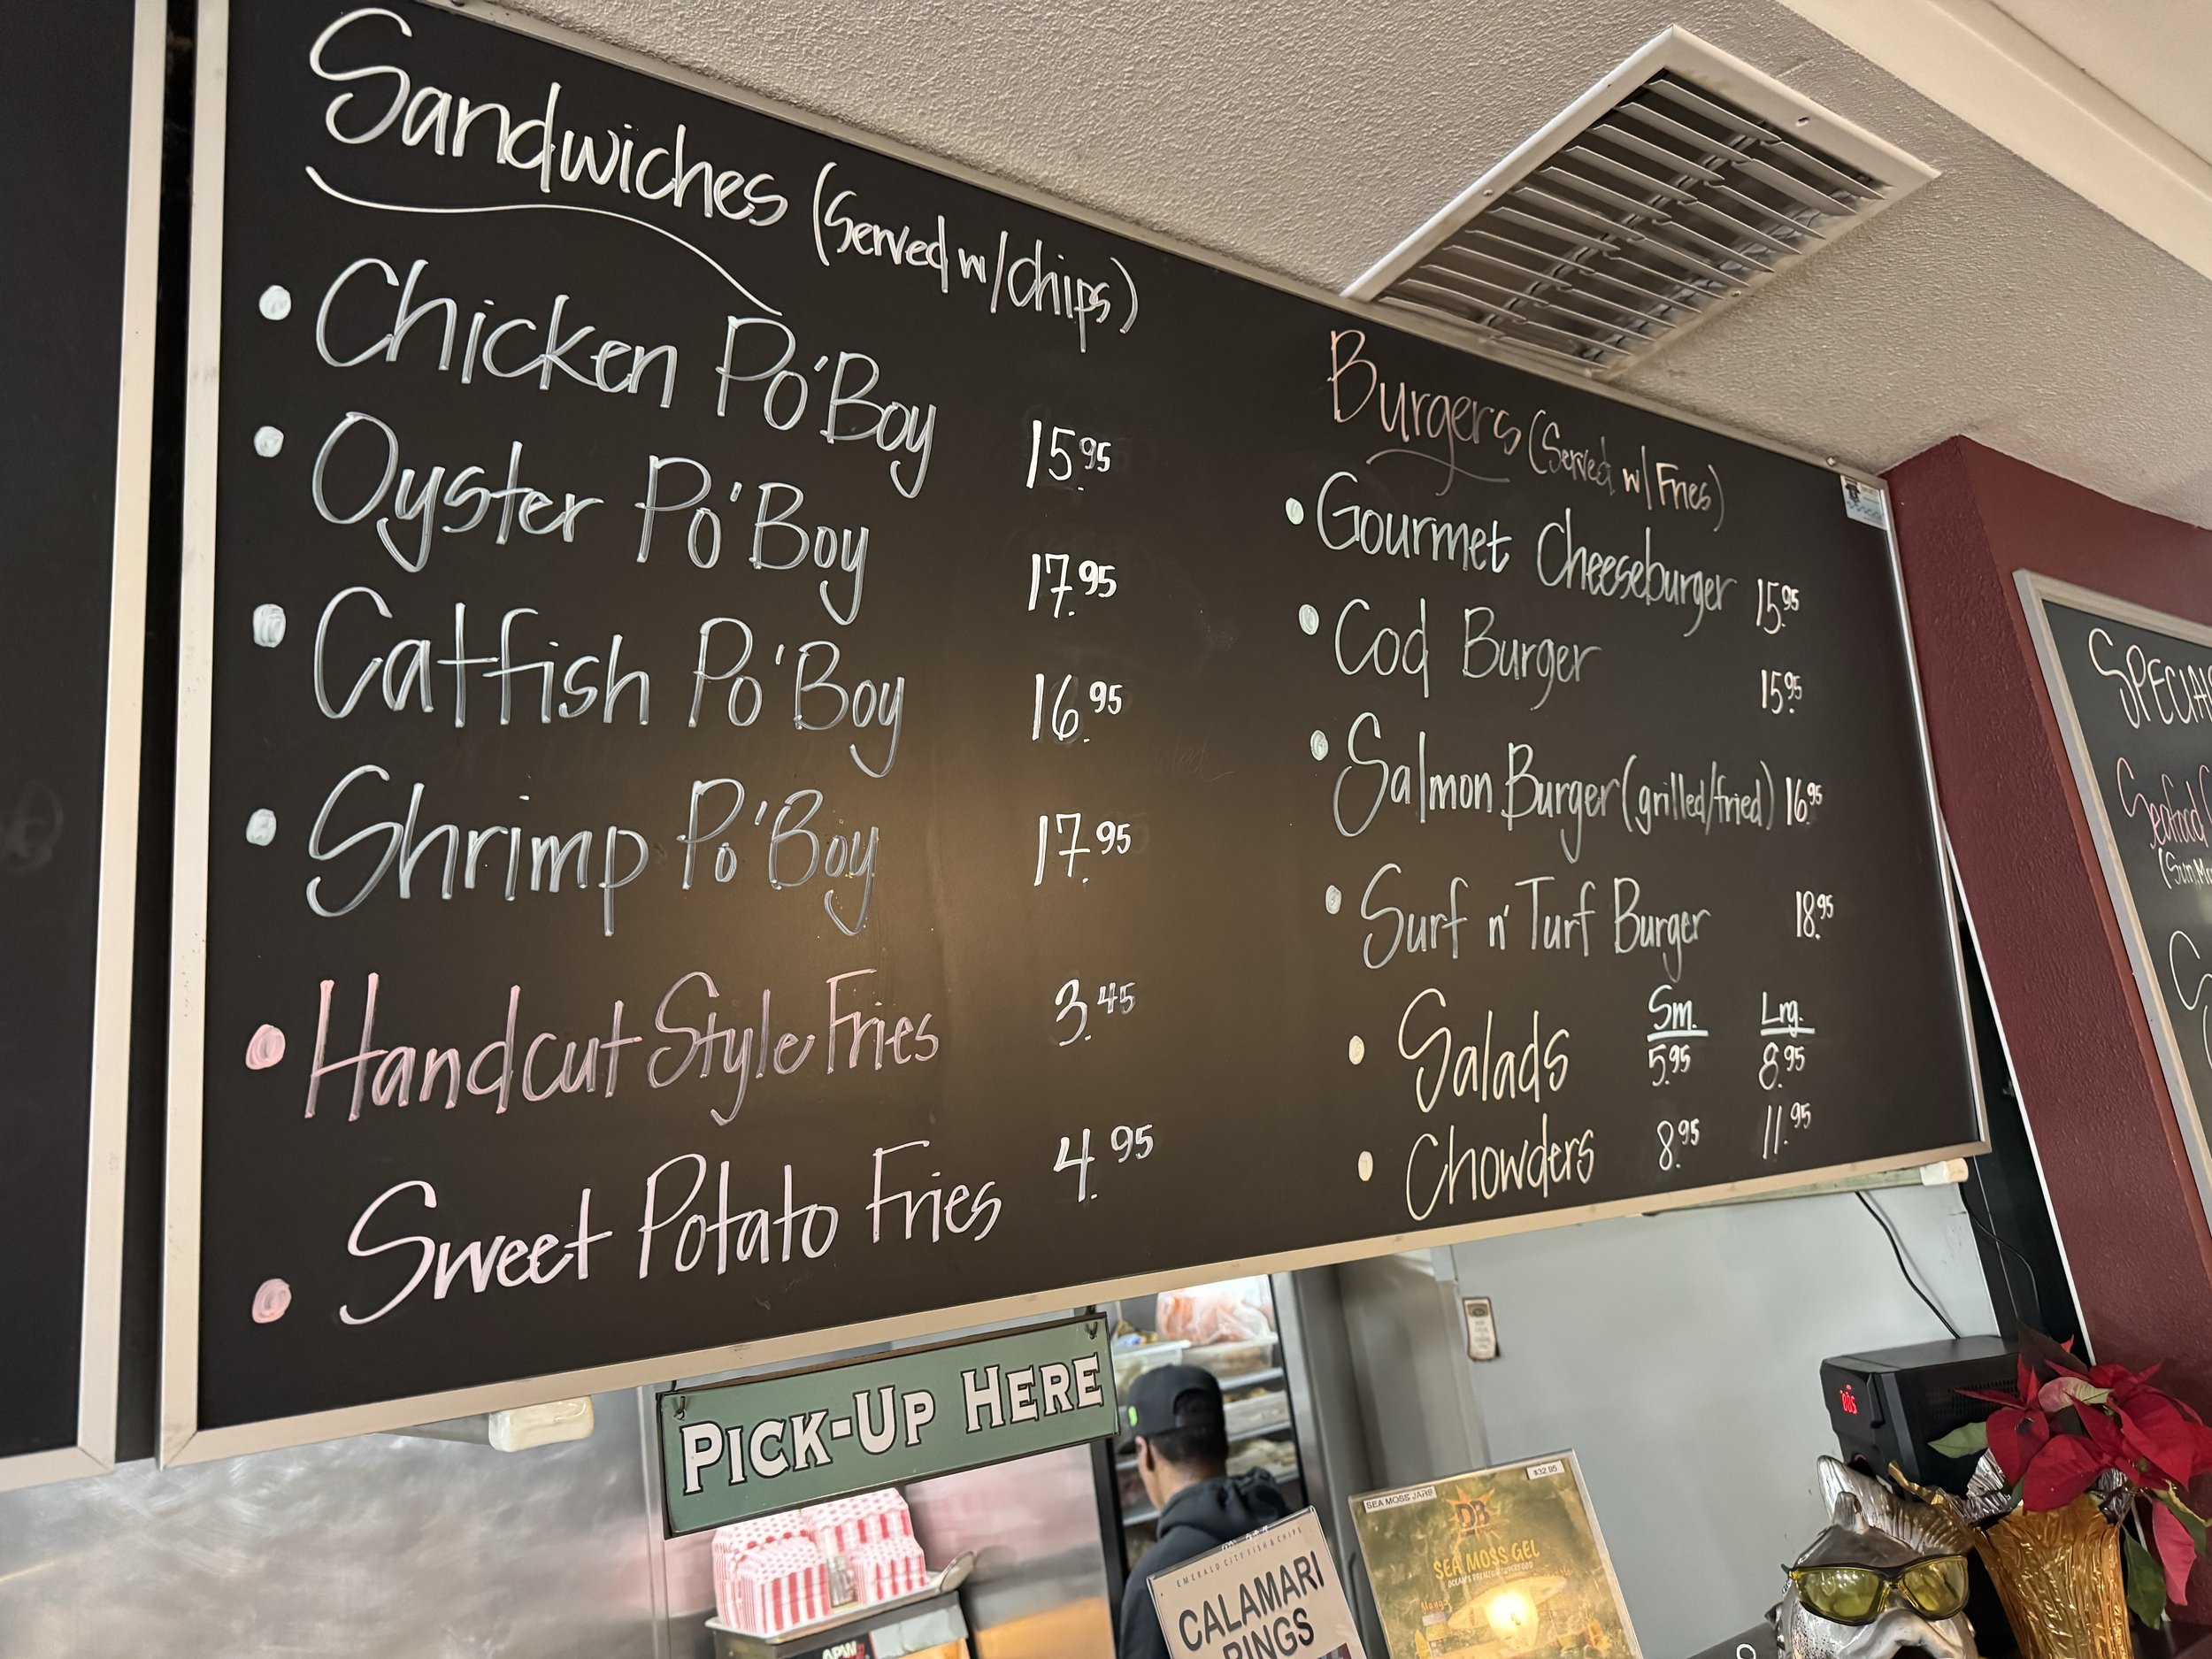 Sandwiches (Served w/chips)
• Chicken Po'Boy 15.95
• Oyster Po'Boy 17.95
• Catfish Po'Boy 16.95
• Shrimp Po'Boy 17.95
• Handcut Style Fries 3.45
• Sweet Potato Fries 4.95
Burgers (Served w/ Fries)
• Gourmet Cheeseburger 15.95
• Cod Burger 15.95
• Salmon Burger (grilled/fried) 16.95
• Surf n' Turf Burger 18.95
Sm. Lrg.
• Salads 5.95 8.95
• Chowders 8.95 11.95
SPECIALS
Seafood
(Sun, Mo
PICK-UP HERE
EMERALD CITY FISH & CHIPS
CALAMARI
RINGS
SEA MOSS JARS
$32.95
DB
SEA MOSS GEL
APW